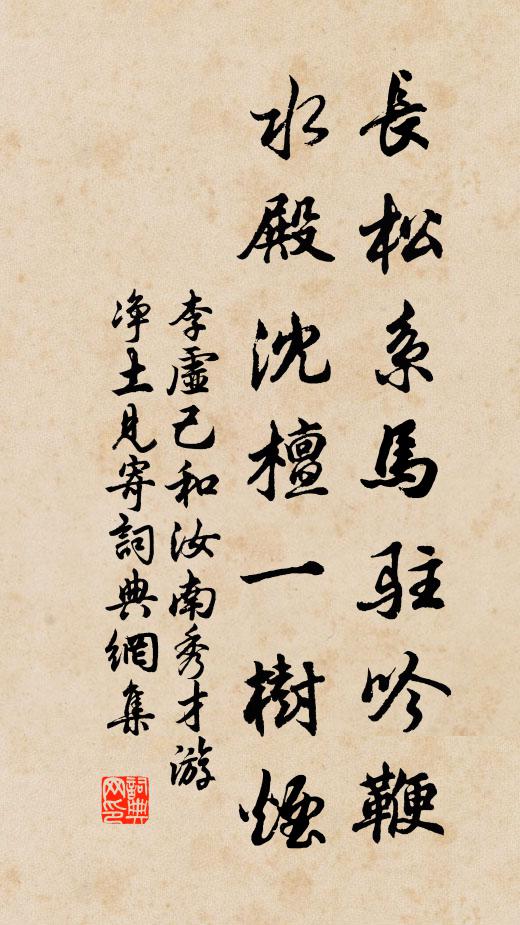 長松系馬駐吟鞭
水殿沈檀一樹煙
李虛己和汝南秀才游
净土見寄詞典網集
詞典
网印